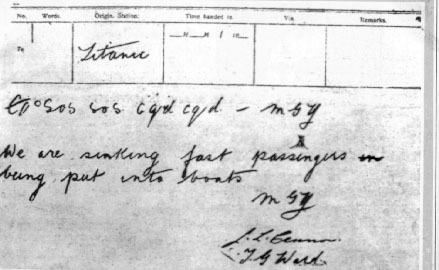 No. Words. Origin. Station. Time handed in. Via. Remarks.
To Titanic H M / 19
SOS SOS cqd cqd - MGY
We are sinking fast passengers
being put into boats
MGY
T G Ward